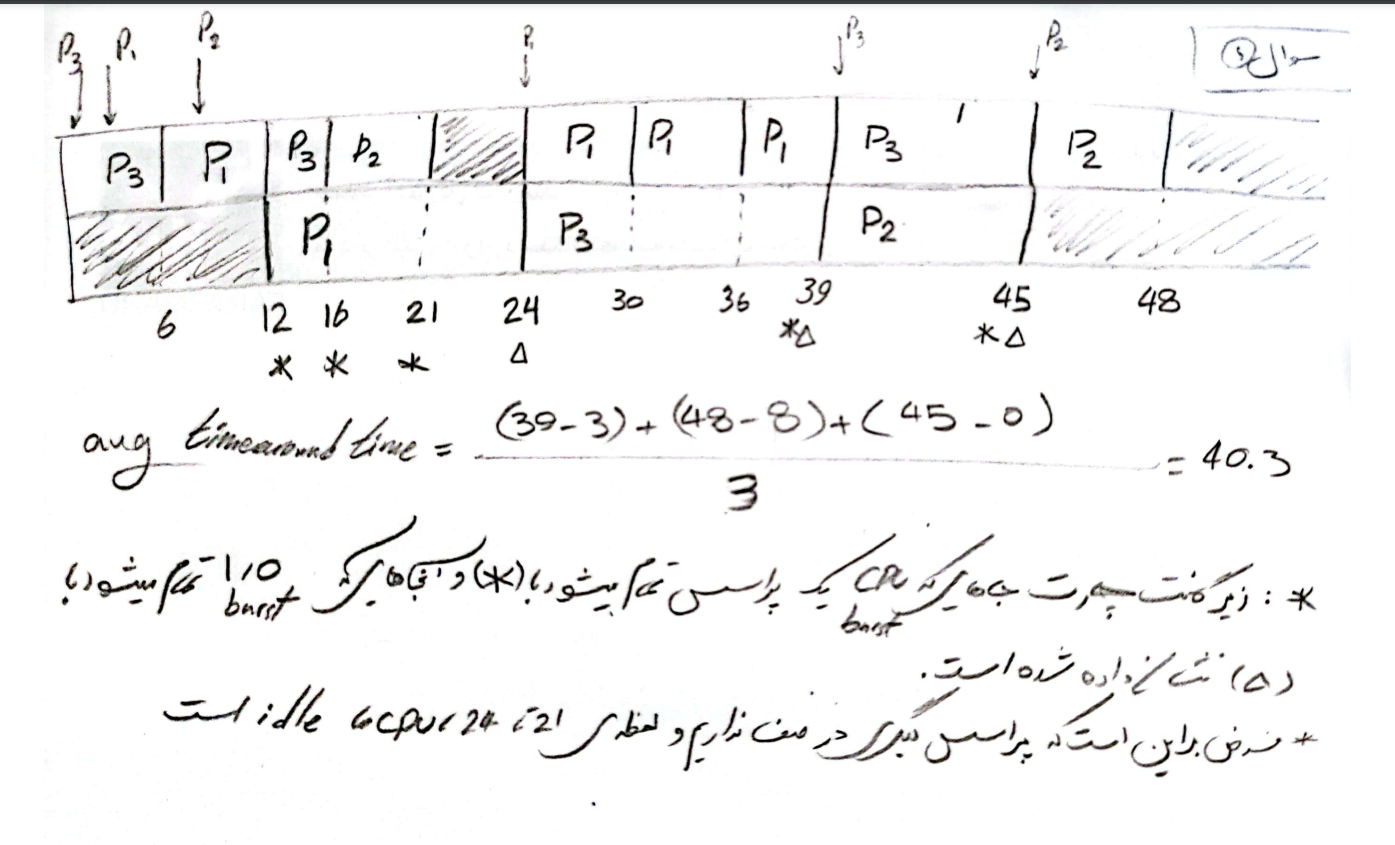 سوال ④
P3 P1 P2 P1 P3 P2
P3 P1 P3 P2 P1 P1 P1 P3 P2
P1 P3 P2
6 12 16 21 24 30 36 39 45 48
* * * Δ *Δ *Δ
avg timearound time = (39-3)+(48-8)+(45-0) / 3 = 40.3
* : زیر گانت چارت جاهایی که CPU burst یک پراسس تمام میشود با (*) و آنجاهایی که I/O burst تمام میشود با
(Δ) نشان داده شده است.
* فرض براین است که پراسس دیگری در صف نداریم و لحظه‌ی 21 تا 24، cpu ما idle است